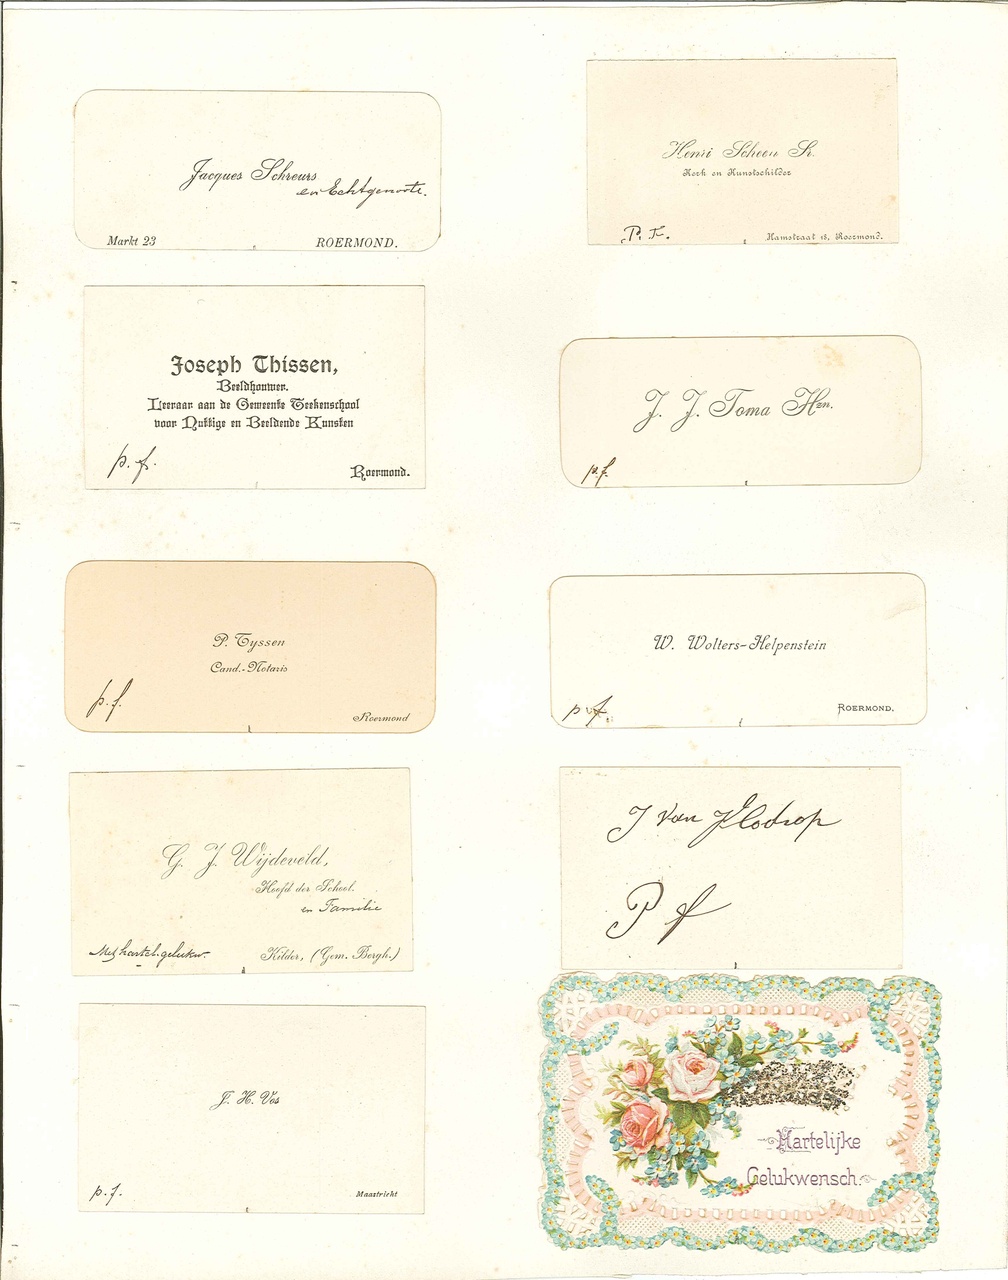 Jacques Schreurs
en Echtgenoote.
Markt 23 ROERMOND.
Henri Scheen Sr.
Kerk en Kunstschilder
P. F. Hamstraat 18, Roermond.
Joseph Thissen,
Beeldhouwer.
Leeraar aan de Gemeente Teekenschool
voor Nuttige en Beeldende Kunsten
p. f. Roermond.
J. J. Toma Hzn.
p.f.
P. Tyssen
Cand.-Notaris
p.f. Roermond
W. Wolters-Helpenstein
p f. ROERMOND.
G. J. Wijdeveld,
Hoofd der School.
en Familie
Met hartel. gelukw. Kilder, (Gem. Bergh.)
J van Flodrop
P f
J. H. Vos
p. f. Maastricht
Hartelijke
Gelukwensch.